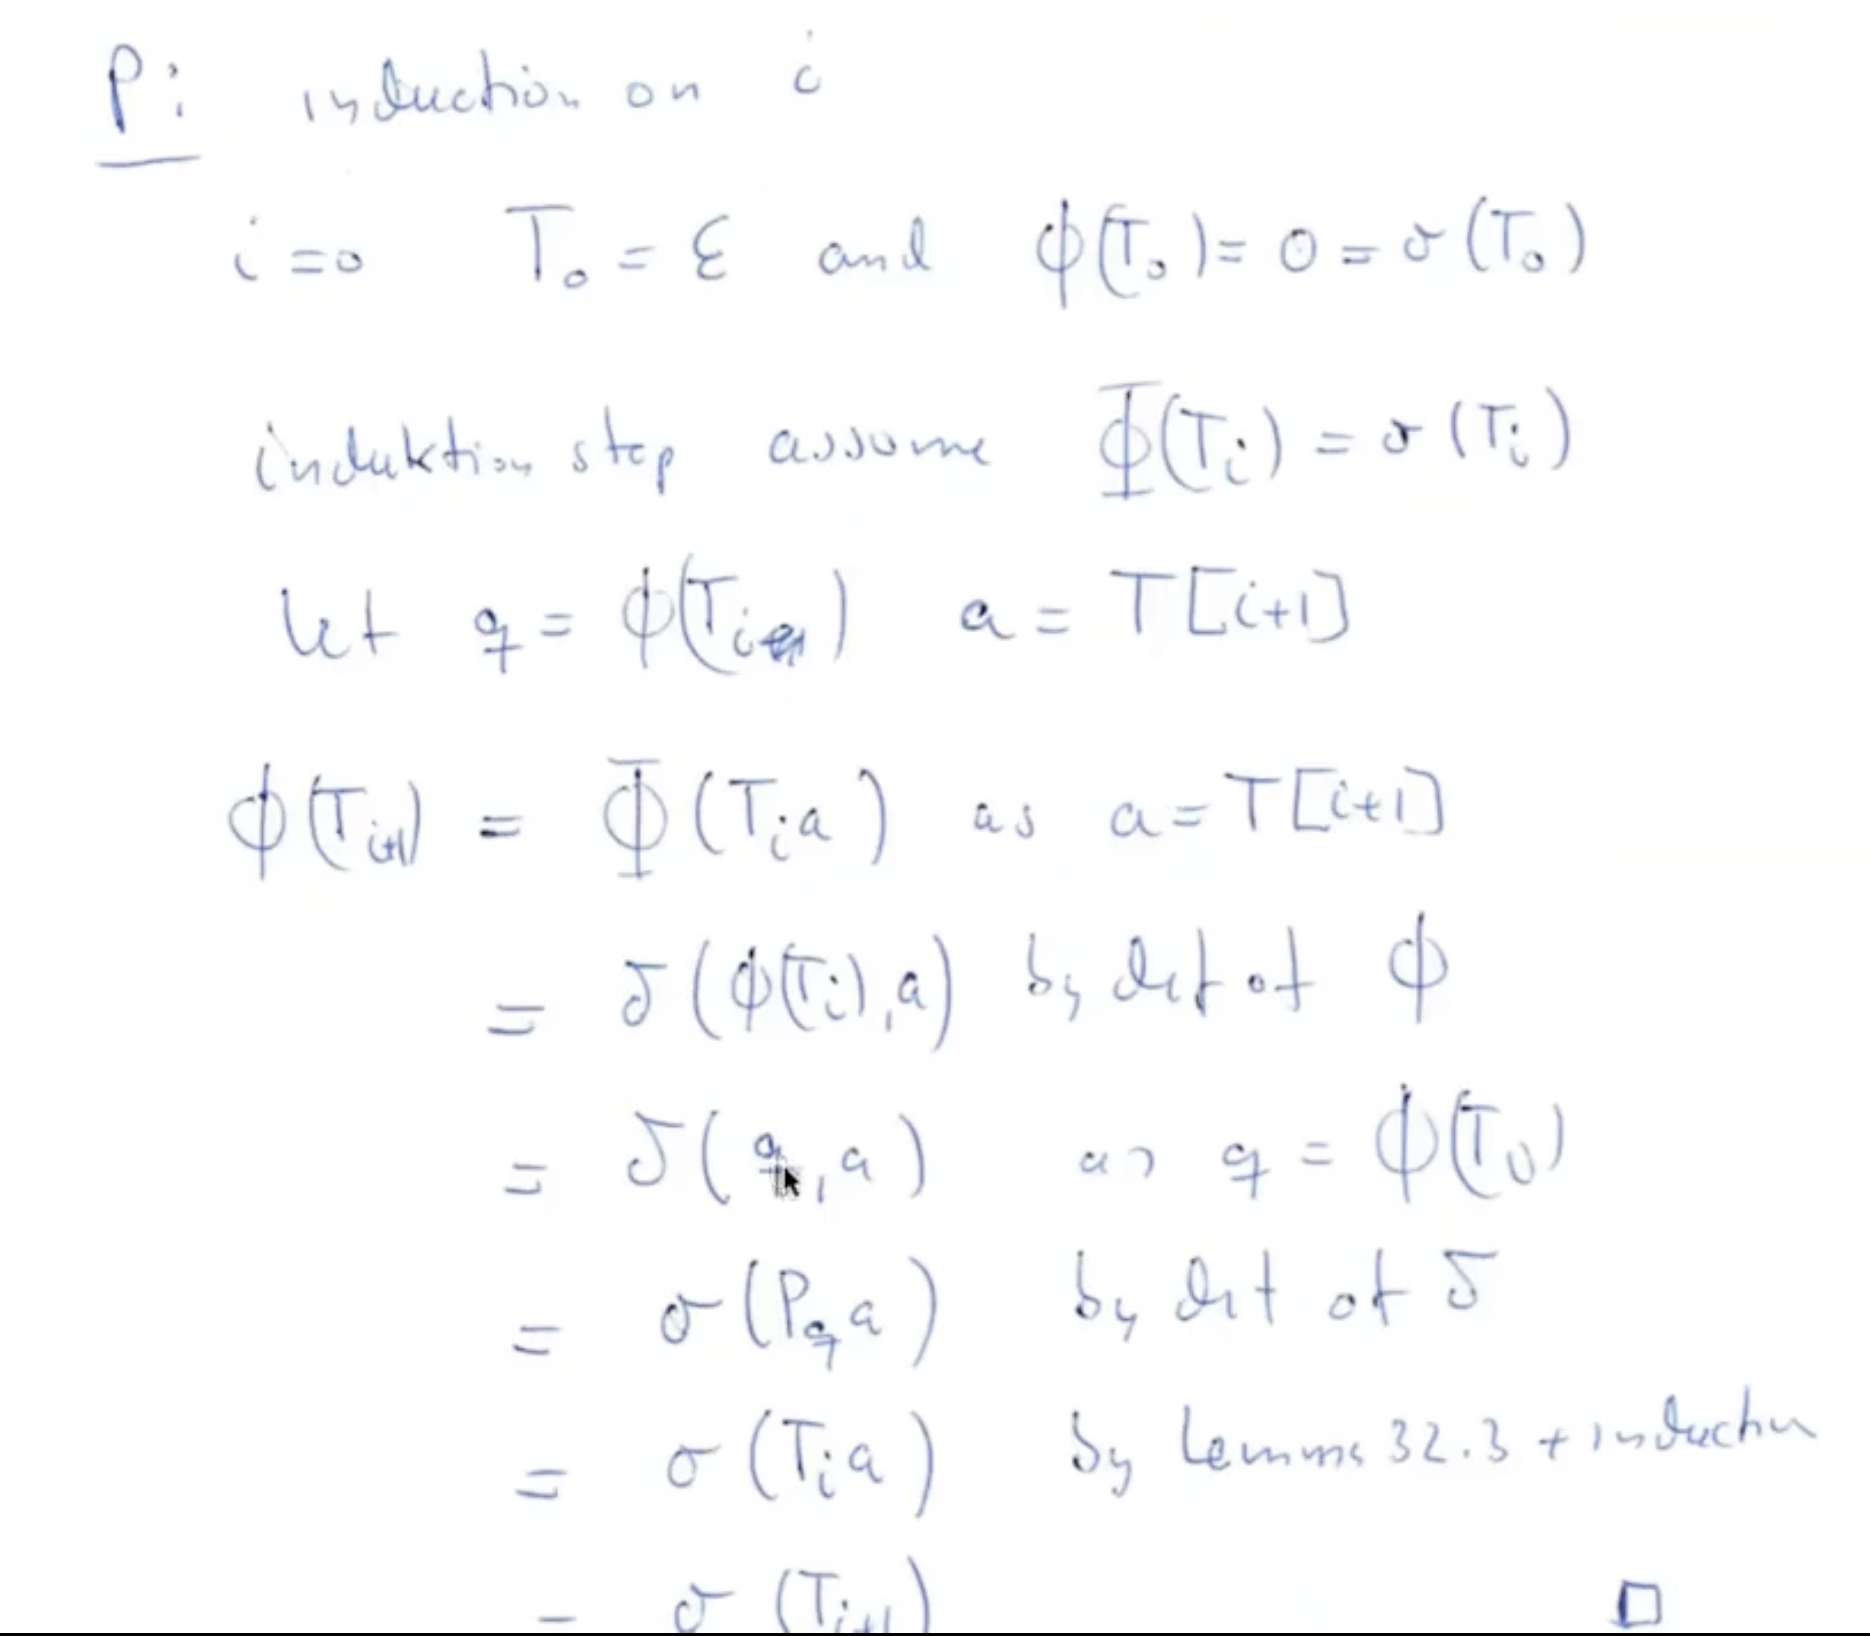 P: induction on i
i=0 T₀ = ε and ϕ(T₀) = 0 = σ(T₀)
induktion step assume Φ(Tᵢ) = σ(Tᵢ)
let q = ϕ(Tᵢ) a = T[i+1]
ϕ(Tᵢ₊₁) = Φ(Tᵢa) as a = T[i+1]
= δ(ϕ(Tᵢ), a) by def of ϕ
= δ(q, a) as q = ϕ(Tᵢ)
= σ(P_q a) by def of δ
= σ(Tᵢa) by Lemma 32.3 + induction
= σ(Tᵢ₊₁) □